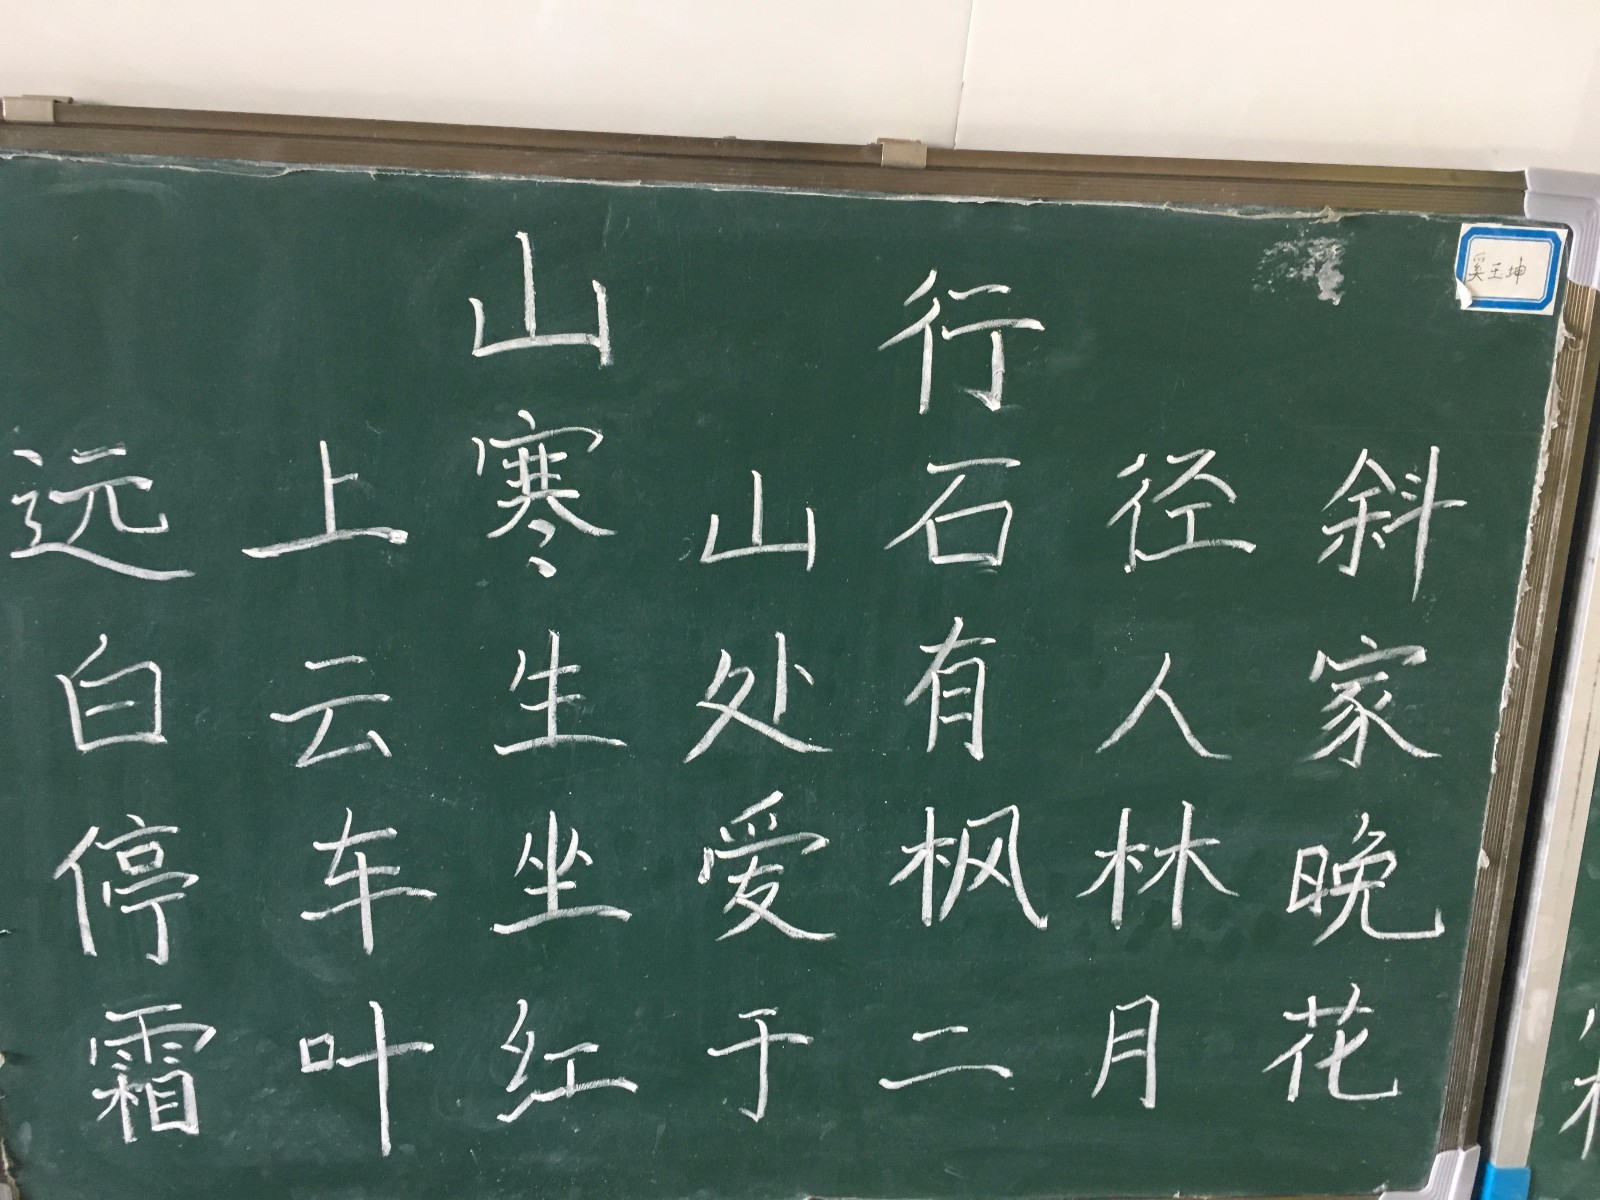 山行
奚王坤
远上寒山石径斜
白云生处有人家
停车坐爱枫林晚
霜叶红于二月花